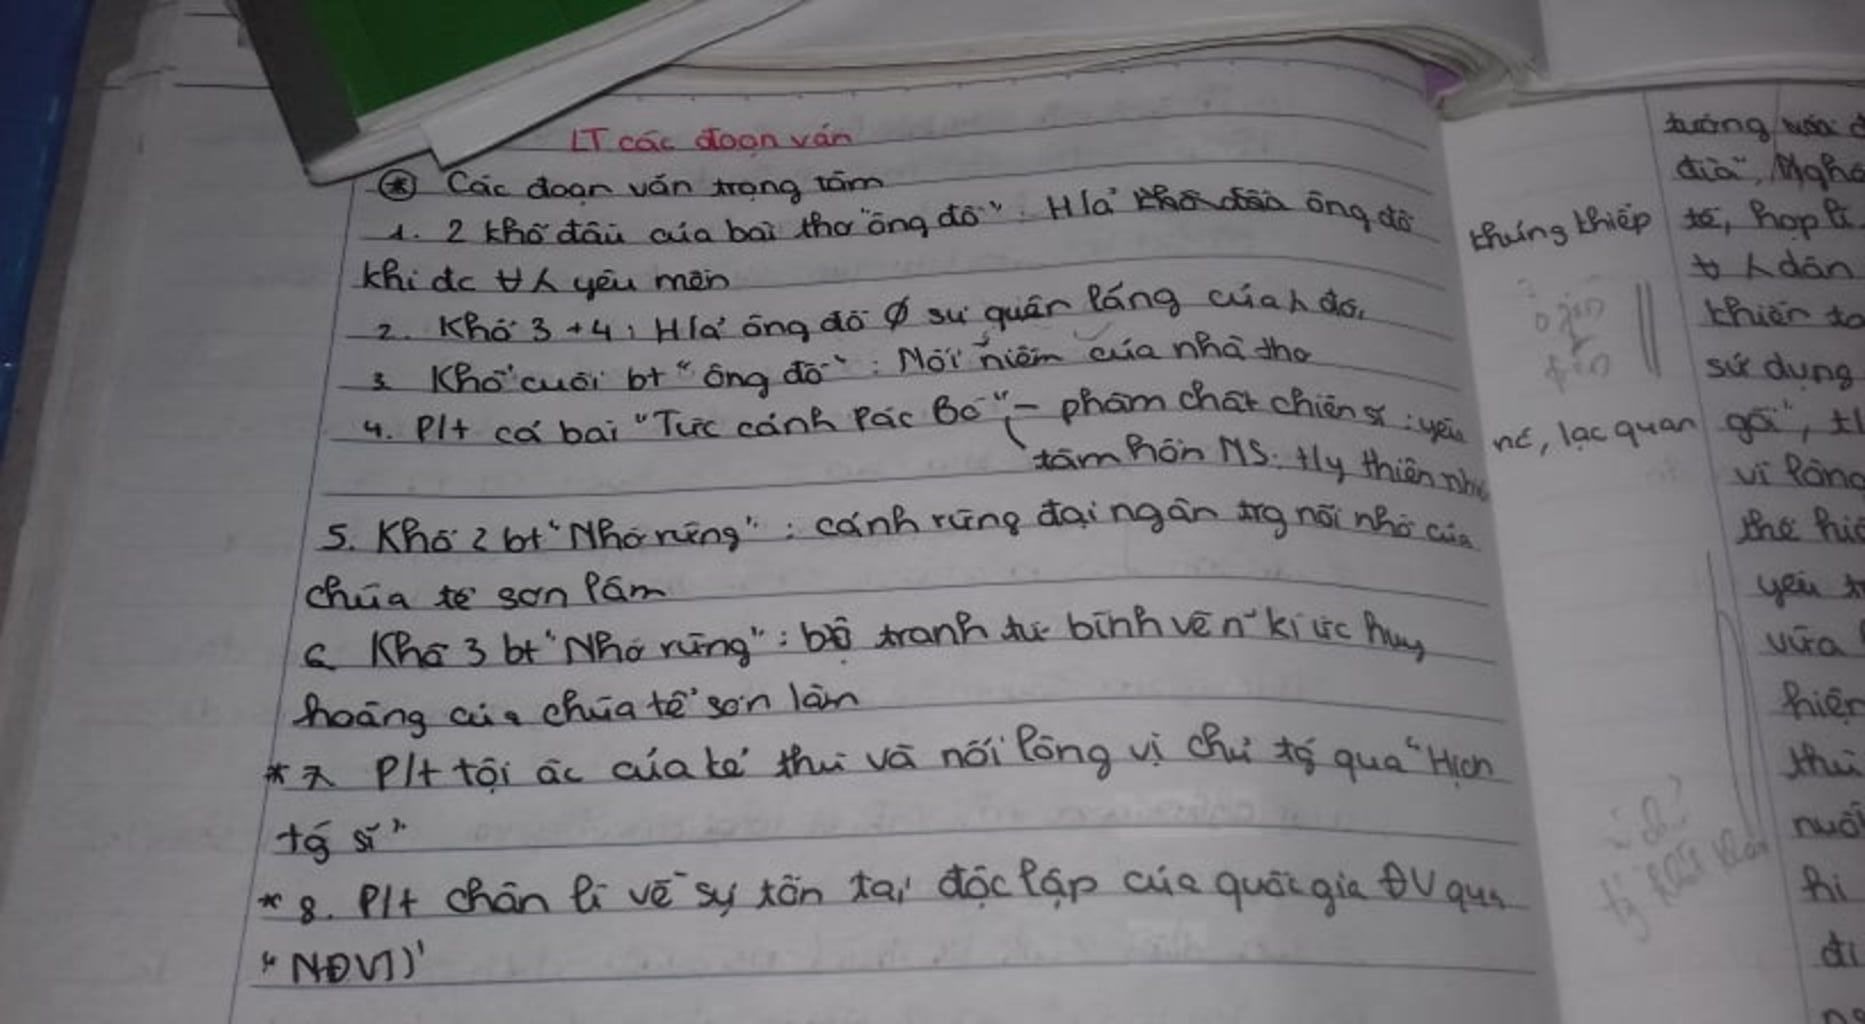 LT các đoạn văn
⊛ Các đoạn văn trọng tâm
1. 2 khổ đầu của bài thơ "ông đồ" : H/ả ông đồ
khi đc ∀ yêu mến
2. Khổ 3 + 4 : H/ả ông đồ ∅ sự quên lãng của đời
3. Khổ cuối bt "ông đồ" : Nỗi niềm của nhà thơ
4. P/t cả bài "Tức cảnh Pác Bó" - phẩm chất chiến sĩ : yêu nc, lạc quan
tâm hồn NS : t/y thiên
5. Khổ 2 bt "Nhớ rừng" : cảnh rừng đại ngàn trg nỗi nhớ của
chúa tể sơn lâm
6 Khổ 3 bt "Nhớ rừng" : bộ tranh tứ bình về n~ kí ức huy
hoàng của chúa tể sơn lâm
* 7 P/t tội ác của kẻ thù và nỗi lòng vị chủ tg qua "Hịch
tg sĩ"
* 8. P/t chân lí về sự tồn tại độc lập của quốc gia ĐV qua
"NĐVT"
khủng khiếp
tướng
địa", Nghệ
tế, hợp lí
dân
khiến ta
sử dụng
gõi",
vì lòng
thể hiệ
yếu
vừa
hiện
thù
nuôi
hi
đi